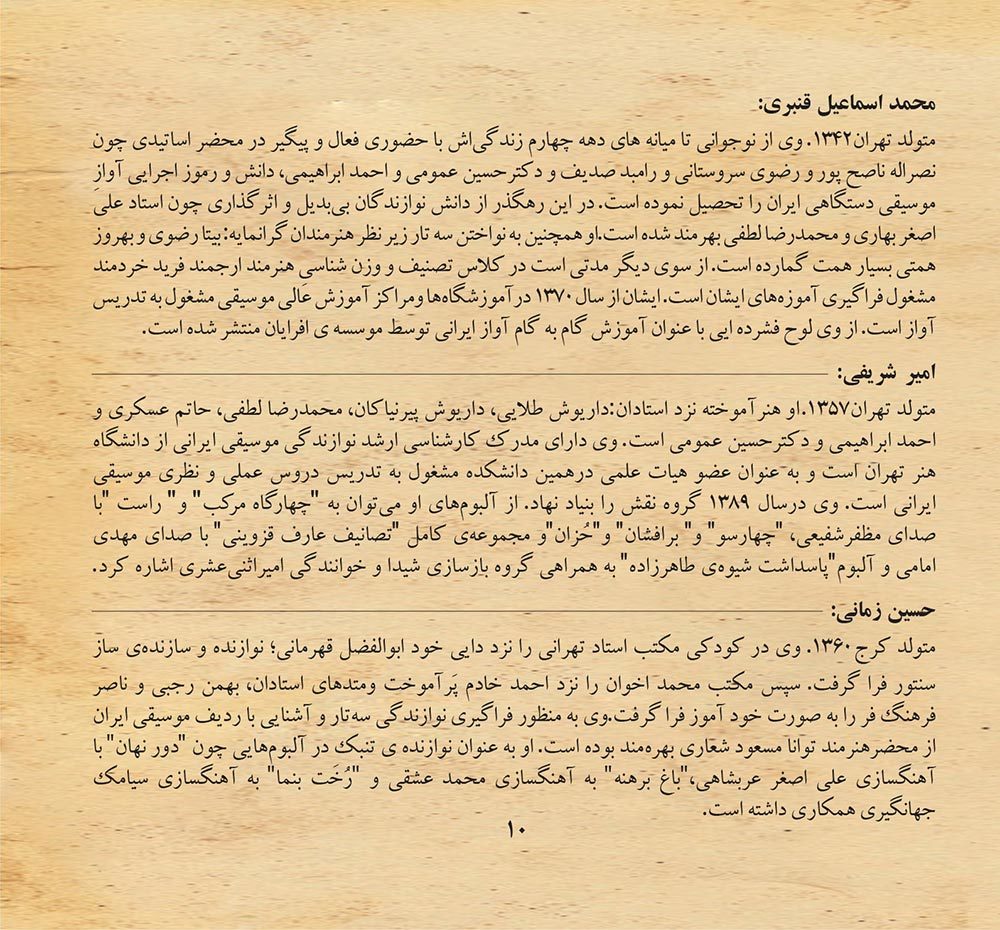 محمد اسماعیل قنبری:
متولد تهران۱۳۴۲. وی از نوجوانی تا میانه های دهه چهارم زندگی‌اش با حضوری فعال و پیگیر در محضر اساتیدی چون
نصراله ناصح پور و رضوی سروستانی و رامبد صدیف و دکترحسین عمومی و احمد ابراهیمی، دانش و رموز اجرایی آوازِ
موسیقی دستگاهی ایران را تحصیل نموده است. در این رهگذر از دانش نوازندگان بی‌بدیل و اثرگذاری چون استاد علی
اصغر بهاری و محمدرضا لطفی بهرمند شده است.او همچنین به نواختن سه تار زیر نظر هنرمندان گرانمایه: بیتا رضوی و بهروز
همتی بسیار همت گمارده است. از سوی دیگر مدتی است در کلاس تصنیف و وزن شناسی هنرمند ارجمند فرید خردمند
مشغول فراگیری آموزه‌های ایشان است. ایشان از سال ۱۳۷۰ در آموزشگاه‌ها ومراکز آموزش عَالی موسیقی مشغول به تدریس
آواز است. از وی لوح فشرده ایی با عنوان آموزش گام به گام آواز ایرانی توسط موسسه ی افرایان منتشر شده است.
امیر شریفی:
متولد تهران۱۳۵۷.او هنرآموخته نزد استادان:داریوش طلایی، داریوش پیرنیاکان، محمدرضا لطفی، حاتم عسکری و
احمد ابراهیمی و دکترحسین عمومی است. وی دارای مدرک کارشناسی ارشد نوازندگی موسیقی ایرانی از دانشگاه
هنر تهران است و به عنوان عضو هیات علمی درهمین دانشکده مشغول به تدریس دروس عملی و نظری موسیقی
ایرانی است. وی درسال ۱۳۸۹ گروه نقش را بنیاد نهاد. از آلبوم‌های او می‌توان به "چهارگاه مرکب" و" راست "با
صدای مظفرشفیعی، "چهارسو" و" برافشان" و"حُزان"و مجموعه‌ی کامل "تصانیف عارف قزوینی" با صدای مهدی
امامی و آلبوم"پاسداشت شیوه‌ی طاهرزاده" به همراهی گروه بازسازی شیدا و خوانندگی امیراثنی‌عشری اشاره کرد.
حسین زمانی:
متولد کرج۱۳۶۰. وی در کودکی مکتب استاد تهرانی را نزد دایی خود ابوالفضل قهرمانی؛ نوازنده و سازنده‌ی ساز
سنتور فرا گرفت. سپس مکتب محمد اخوان را نزد احمد خادم پَرآموخت ومتدهای استادان، بهمن رجبی و ناصر
فرهنگ فر را به صورت خود آموز فرا گرفت.وی به منظور فراگیری نوازندگی سه‌تار و آشنایی با ردیف موسیقی ایران
از محضرهنرمند توانا مسعود شعاری بهره‌مند بوده است. او به عنوان نوازنده ی تنبک در آلبوم‌هایی چون "دور نهان" با
آهنگسازی علی اصغر عربشاهی،"باغ برهنه" به آهنگسازی محمد عشقی و "رُخَت بنما" به آهنگسازی سیامک
جهانگیری همکاری داشته است.
۱۰